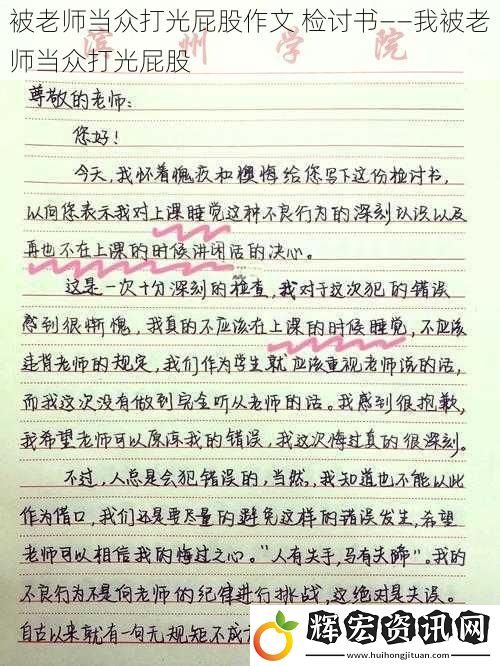 被老师当众打光屁股作文 检讨书——我被老
师当众打光屁股
滨州学院
尊敬的老师：
您好！
今天，我怀着愧疚和懊悔给您写下这份检讨书，
以向您表示我对上课睡觉这种不良行为的深刻认识以及
再也不在上课的时候讲闭话的决心。
这是一次十分深刻的检查，我对于这次犯的错误
感到很惭愧，我真的不应该在上课的时候睡觉，不应该
违背老师的规定，我们作为学生就应该重视老师说的话，
而我这次没有做到完全听从老师的话。我感到很抱歉，
我希望老师可以原谅我的错误，我这次悔过真的很深刻。
不过，人总是会犯错误的，当然，我知道也不能以此
作为借口，我们还是要尽量的避免这样的错误发生，希望
老师可以相信我的悔过之心。“人有失手，马有失蹄”。我的
不良行为不是向老师的纪律进行挑战，这绝对是失误。
自古以来就有一句无规矩不成
辉宏资讯网
www.huihongjituan.com